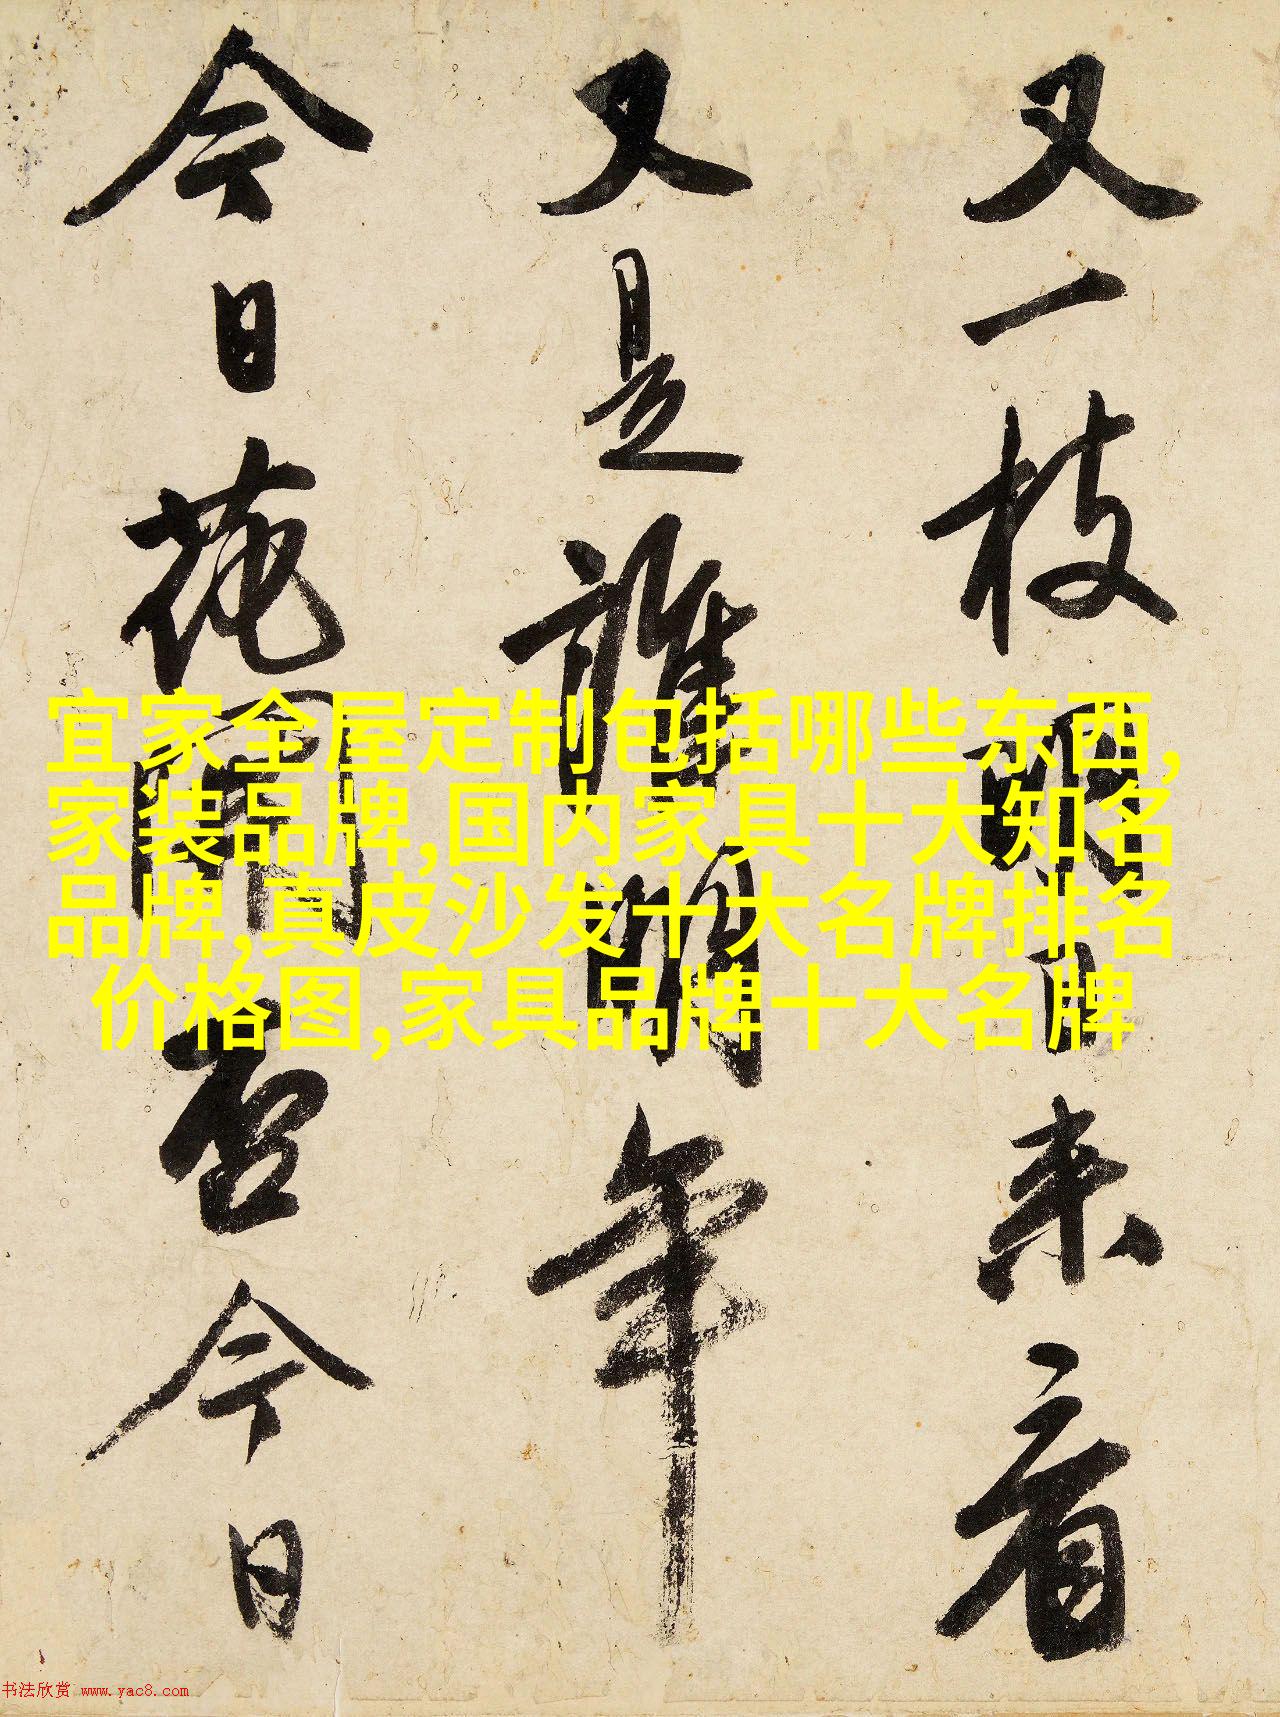 又一枝明日来看
又是誰明年
今日花開否今日
宜家全屋定制包括哪些东西,
家装品牌,国内家具十大知名
品牌,真皮沙发十大名牌排名
价格图,家具品牌十大名牌
书法欣赏 www.yac8.com